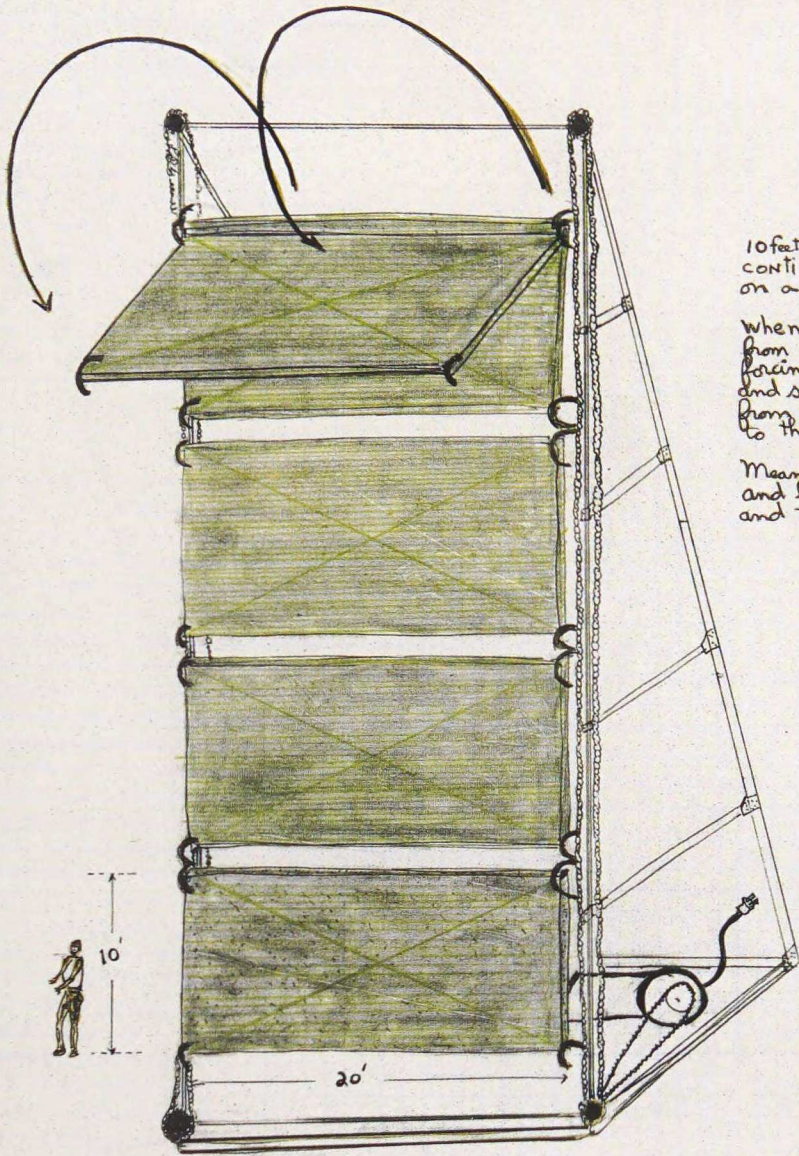 10 feet
conti
on a
When
from
forcin
and s
from
to th
Mean
and
and
10'
20'